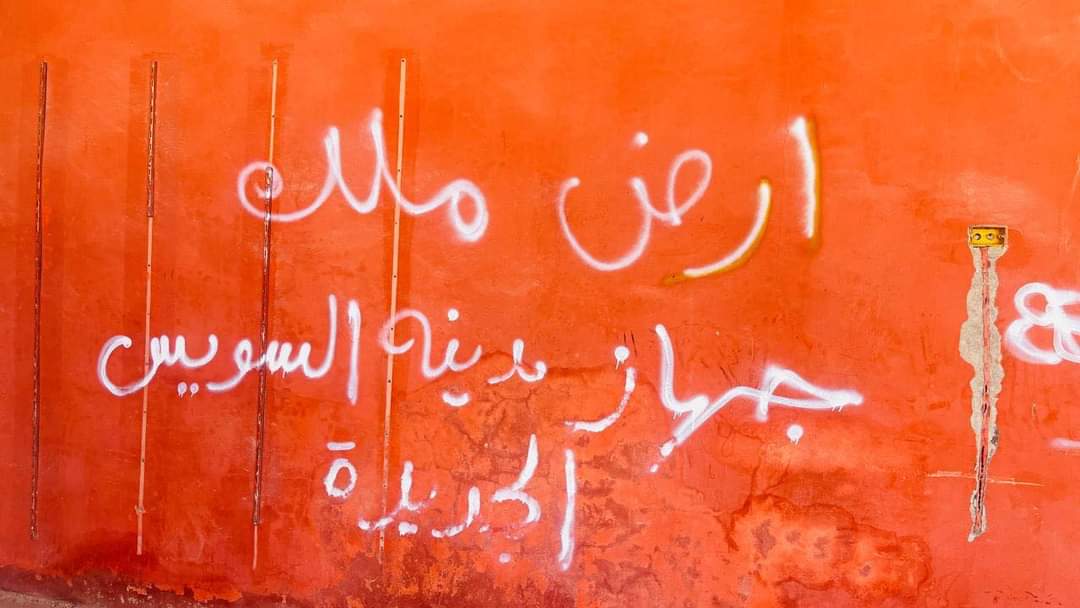 ارض ملك
جهاز مدينه السويس
الجديدة